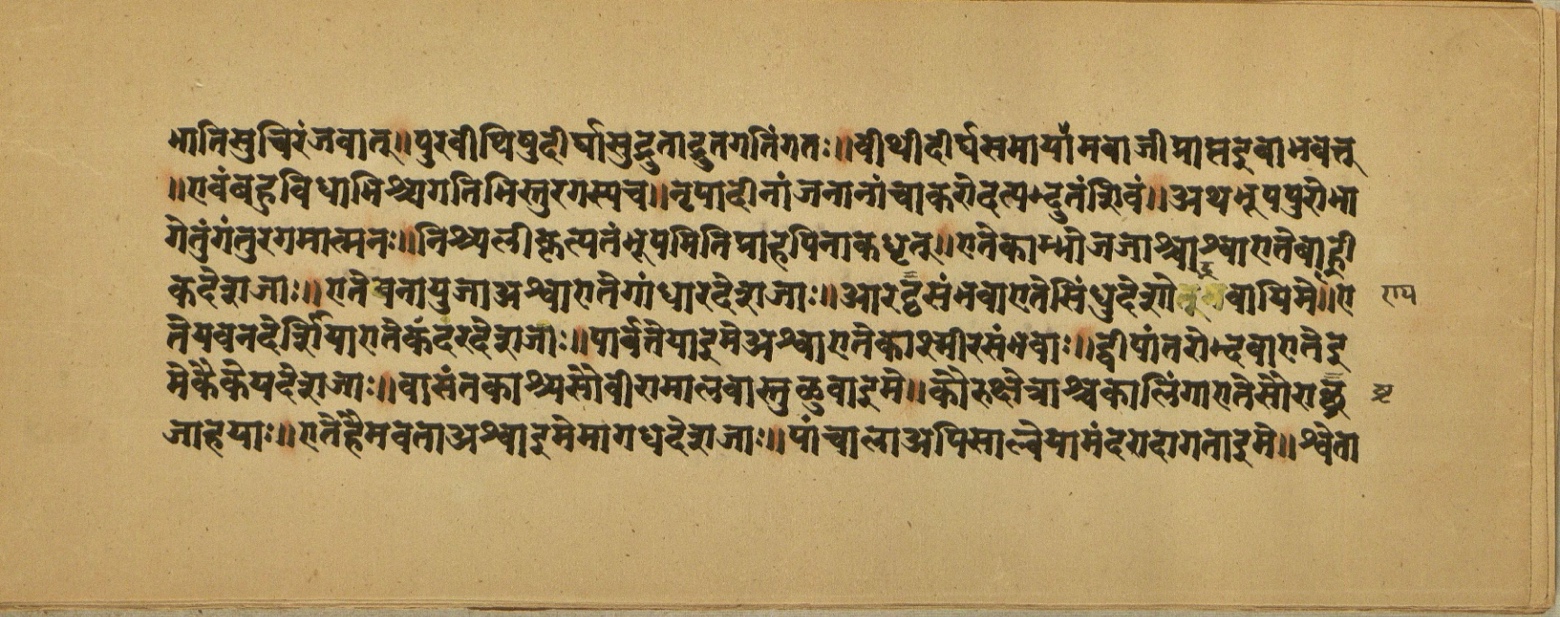 भातिसुचिरंजवात्॥पुरवीथिषुदीर्घासुद्रुताद्रुतगतिंगतः॥वीथीदीर्घसमायांमवाजीप्राप्तइवाभवत्
॥एवंबहुविधाभिश्चगतिभिस्तुरगस्यच॥नृपादीनांजनानांचाकरोदत्यद्भुतंशिवं॥अथभूपपुरोभा
गेतुंगंतुरगमात्मनः॥निश्चलीकृत्यतंभूपमितिप्राहपिनाकधृत्॥एतेकाम्भोजजाश्चाश्वाएतेबाह्ली
कदेशजाः॥एतेवनायुजाअश्वाएतेगांधारदेशजाः॥आरट्टसंभवाएतेसिंधुदेशो वापिमे॥ए राप्य
तेयवनदेशीयाएतेकंदरदेशजाः॥पार्वतेयाइमेअश्वाएतेकाश्मीरसंभवाः॥द्वीपांतरोद्भवाएतेइ
मेकैकेयदेशजाः॥वासंतकाश्चसौवीरामालवास्तुळुवाइमे॥कौरुक्षेत्राश्चकालिंगाएतेसौराष्ट्र ष्ट्र
जाहयाः॥एतेहैमवताअश्वाइमेमागधदेशजाः॥पांचालाअपिसाल्वेयामंदरादागताइमे॥श्वेता